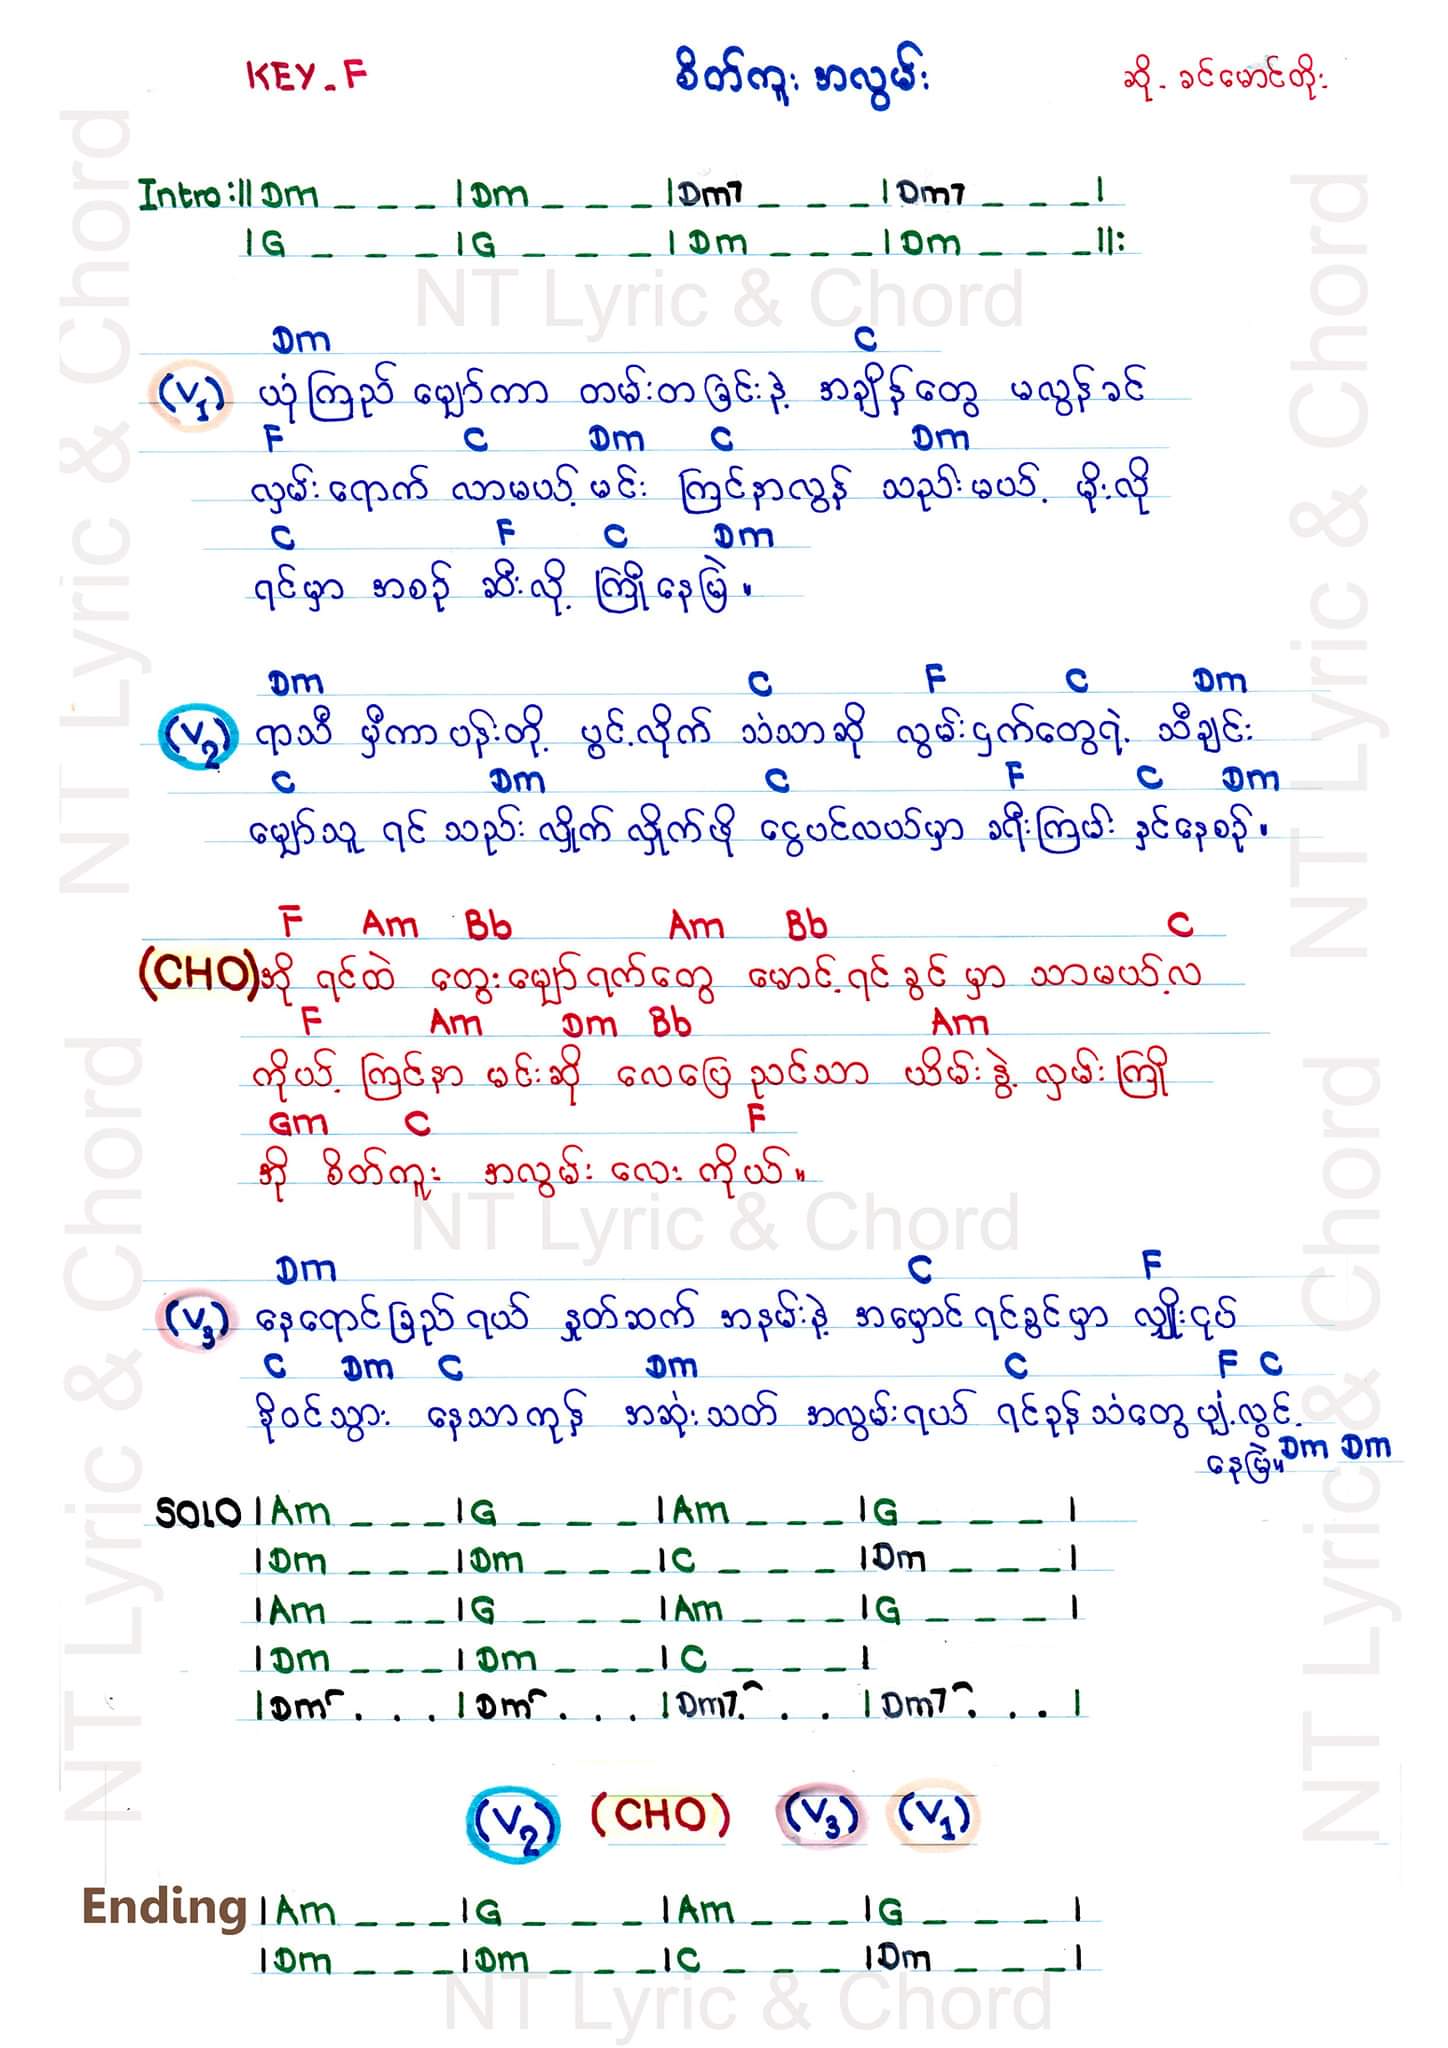 KEY - F စိတ်ကူး အလွမ်း ဆို - ခင်မောင်တိုး
Intro :|| Dm _ _ _ | Dm _ _ _ | Dm7 _ _ _ | Dm7 _ _ _ |
| G _ _ _ | G _ _ _ | Dm _ _ _ | Dm _ _ _ ||:
NT Lyric & Chord
Dm C
(V1) ယုံကြည် မျှော်ကာ တမ်းတခြင်းနဲ့ အချိန်တွေ မလွန်ခင်
F C Dm C Dm
လှမ်းရောက် လာမယ့် မင်း ကြင်နာလွန် သည်းမယ့် မိုးလို
C F C Dm
ရင်မှာ အစဉ် ဆီးလို့ ကြိုနေမြဲ။
Dm C F C Dm
(V2) ရာသီ မှီကာ ပန်းတို့ ပွင့်လိုက် သံသာဆို လွမ်းငှက်တွေရဲ့ သီချင်း
C Dm C F C Dm
မျှော်သူ ရင် သည်း လှိုက် လှိုက်ဖို ငွေပင်လယ်မှာ ခရီးကြမ်း နှင်နေစဉ်။
F Am Bb Am Bb C
(CHO) အို ရင်ထဲ တွေးမျှော်ရက်တွေ မောင့်ရင်ခွင် မှာ သာမယ့်လ
F Am Dm Bb Am
ကိုယ့် ကြင်နာ မင်းဆို လေပြေ ညင်သာ ယိမ်းနွဲ့ လှမ်းကြို
Gm C F
အို စိတ်ကူး အလွမ်း လေး ကိုယ်။
NT Lyric & Chord
Dm C F
(V3) နေရောင်ခြည်ရယ် နှုတ်ဆက် အနမ်းနဲ့ အမှောင်ရင်ခွင်မှာ လျှိုးငုပ်
C Dm C Dm C F C
ခိုဝင်သွား နေသာကုန် အဆုံးသတ် အလွမ်းရယ် ရင်ခုန်သံတွေ ပျံ့လွင့်
နေမြဲ။ Dm Dm
SOLO | Am _ _ _ | G _ _ _ | Am _ _ _ | G _ _ _ |
| Dm _ _ _ | Dm _ _ _ | C _ _ _ | Dm _ _ _ |
| Am _ _ _ | G _ _ _ | Am _ _ _ | G _ _ _ |
| Dm _ _ _ | Dm _ _ _ | C _ _ _ |
| Dm . . . | Dm . . . | Dm7 . . . | Dm7 . . . |
(V2) (CHO) (V3) (V1)
Ending | Am _ _ _ | G _ _ _ | Am _ _ _ | G _ _ _ |
| Dm _ _ _ | Dm _ _ _ | C _ _ _ | Dm _ _ _ |
NT Lyric & Chord
NT Lyric & Chord
NT Lyric & Chord
NT Lyric & Chord
NT Lyric & Chord